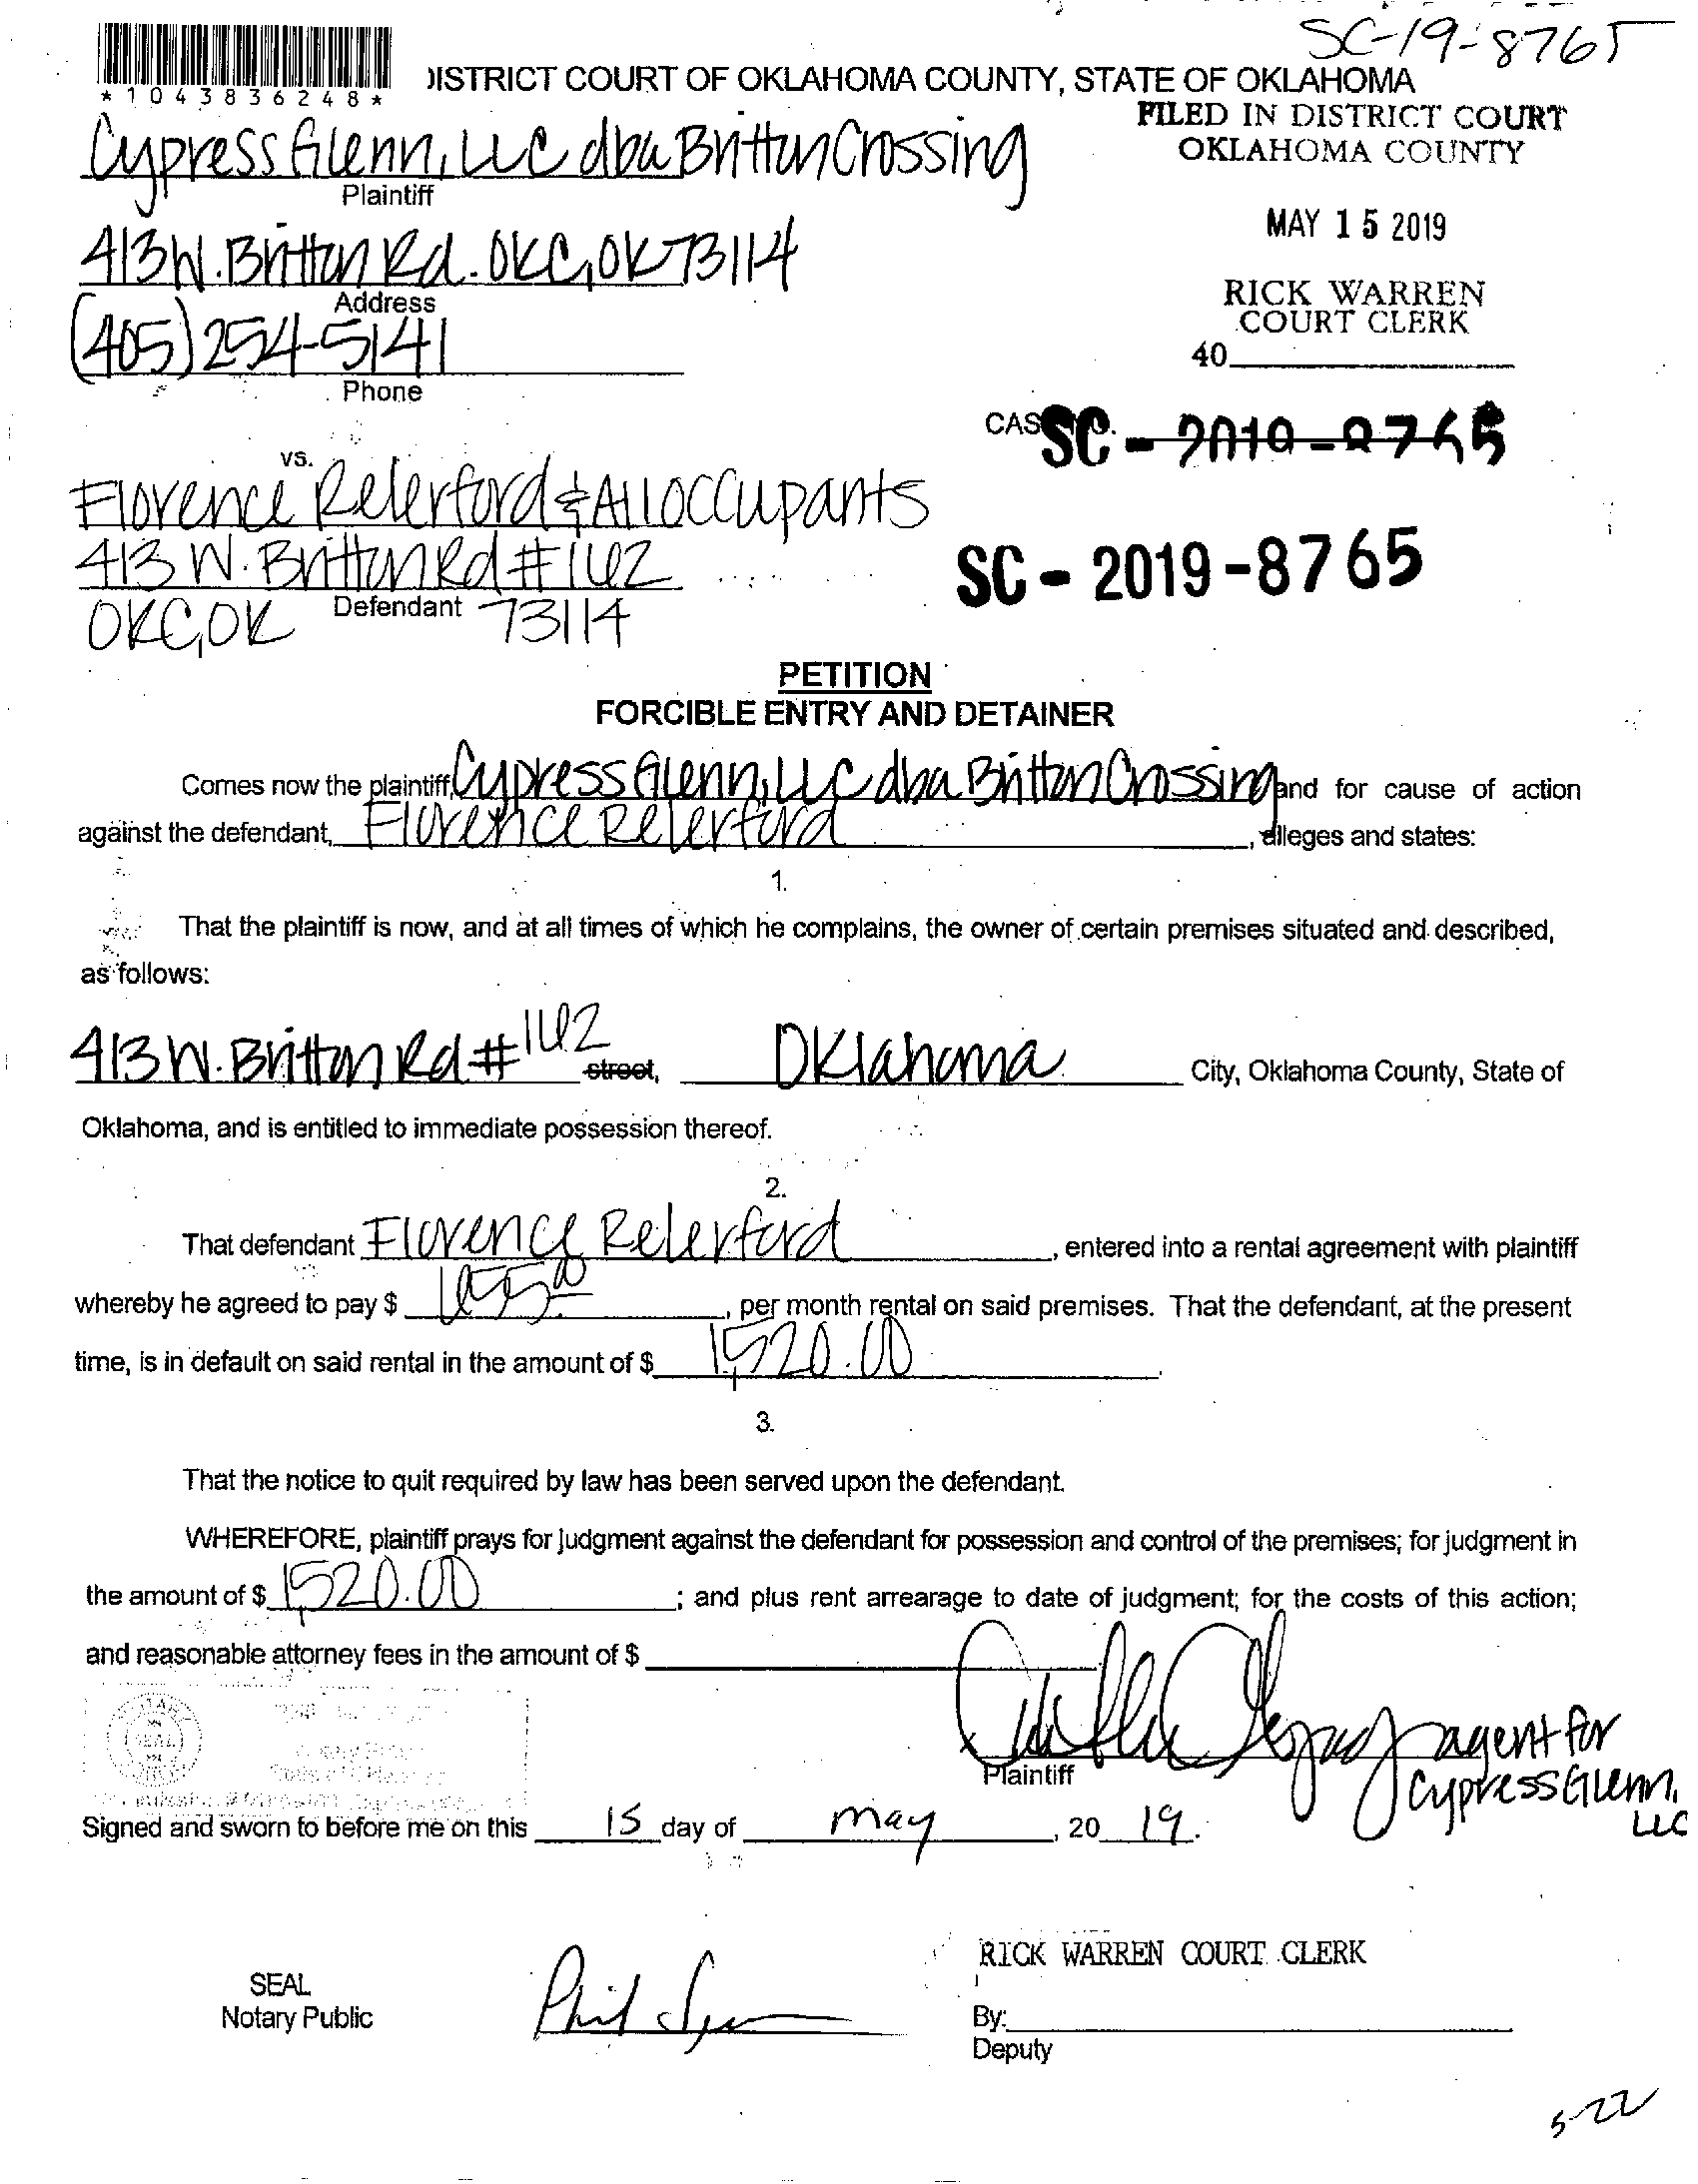 SC-19-8765
*1043836248*
DISTRICT COURT OF OKLAHOMA COUNTY, STATE OF OKLAHOMA
FILED IN DISTRICT COURT
OKLAHOMA COUNTY
Cypress Glenn, LLC dba Britton Crossing
Plaintiff
MAY 15 2019
413 W. Britton Rd. OKC, OK 73114
Address
RICK WARREN
COURT CLERK
(405) 254-5141
40
Phone
CAS NO. SC - 2019 - 8765
vs.
Florence Relerford & All occupants
413 W. Britton Rd #162
SC - 2019 - 8765
OKC, OK Defendant 73114
PETITION
FORCIBLE ENTRY AND DETAINER
Comes now the plaintiff, Cypress Glenn, LLC dba Britton Crossing and for cause of action
against the defendant, Florence Relerford, alleges and states:
1.
That the plaintiff is now, and at all times of which he complains, the owner of certain premises situated and described,
as follows:
413 W. Britton Rd #162 street, Oklahoma City, Oklahoma County, State of
Oklahoma, and is entitled to immediate possession thereof.
2.
That defendant Florence Relerford, entered into a rental agreement with plaintiff
whereby he agreed to pay $ , per month rental on said premises. That the defendant, at the present
time, is in default on said rental in the amount of $ 1,520.00.
3.
That the notice to quit required by law has been served upon the defendant.
WHEREFORE, plaintiff prays for judgment against the defendant for possession and control of the premises; for judgment in
the amount of $ 1,520.00; and plus rent arrearage to date of judgment; for the costs of this action;
and reasonable attorney fees in the amount of $
x agent for
Plaintiff Cypress Glenn,
LLC
Signed and sworn to before me on this 15 day of May, 2019.
RICK WARREN COURT CLERK
SEAL
Notary Public
By:
Deputy
5-22